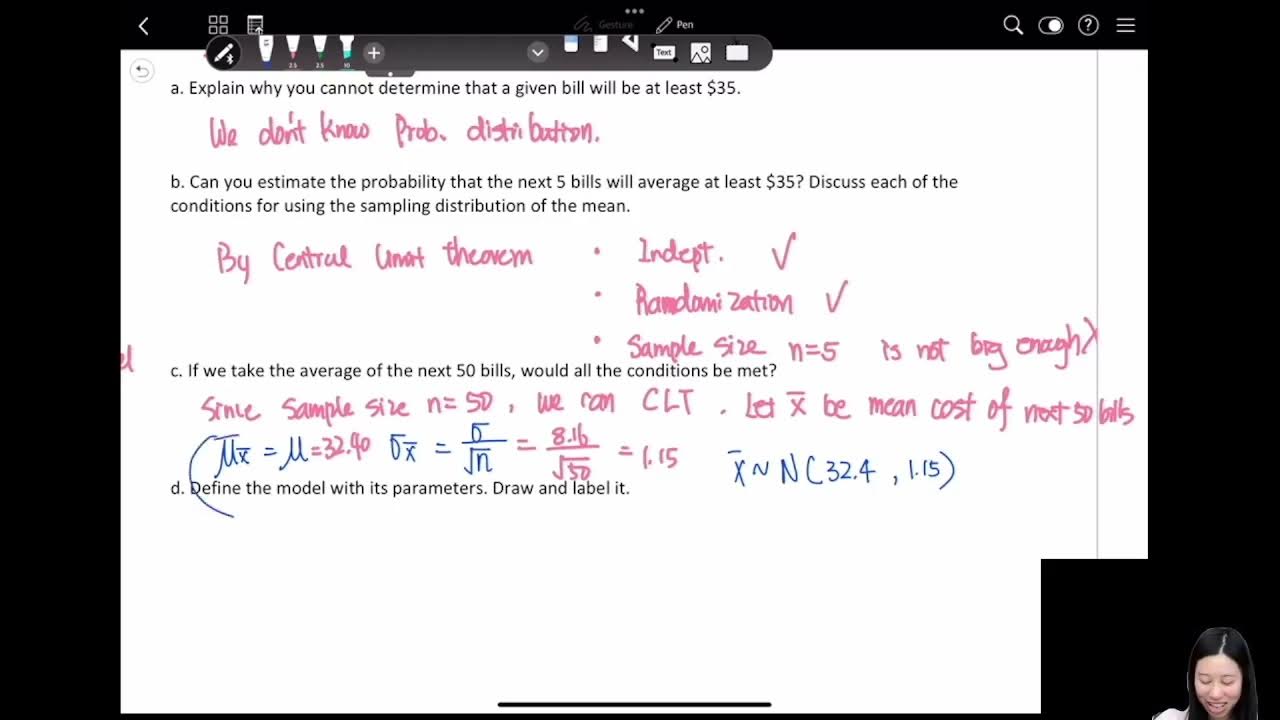 Gesture Pen
2.5 2.5 10 Text
a. Explain why you cannot determine that a given bill will be at least $35.
We don't know Prob. distribution.
b. Can you estimate the probability that the next 5 bills will average at least $35? Discuss each of the
conditions for using the sampling distribution of the mean.
By Central limit theorem • Indept. √
• Randomization √
• Sample size n=5 is not big enough X
c. If we take the average of the next 50 bills, would all the conditions be met?
Since Sample size n=50, we can CLT. Let x̄ be mean cost of next 50 bills
μx̄ = μ = 32.40 σx̄ = σ/√n = 8.16/√50 = 1.15 x̄ ~ N(32.4, 1.15)
d. Define the model with its parameters. Draw and label it.